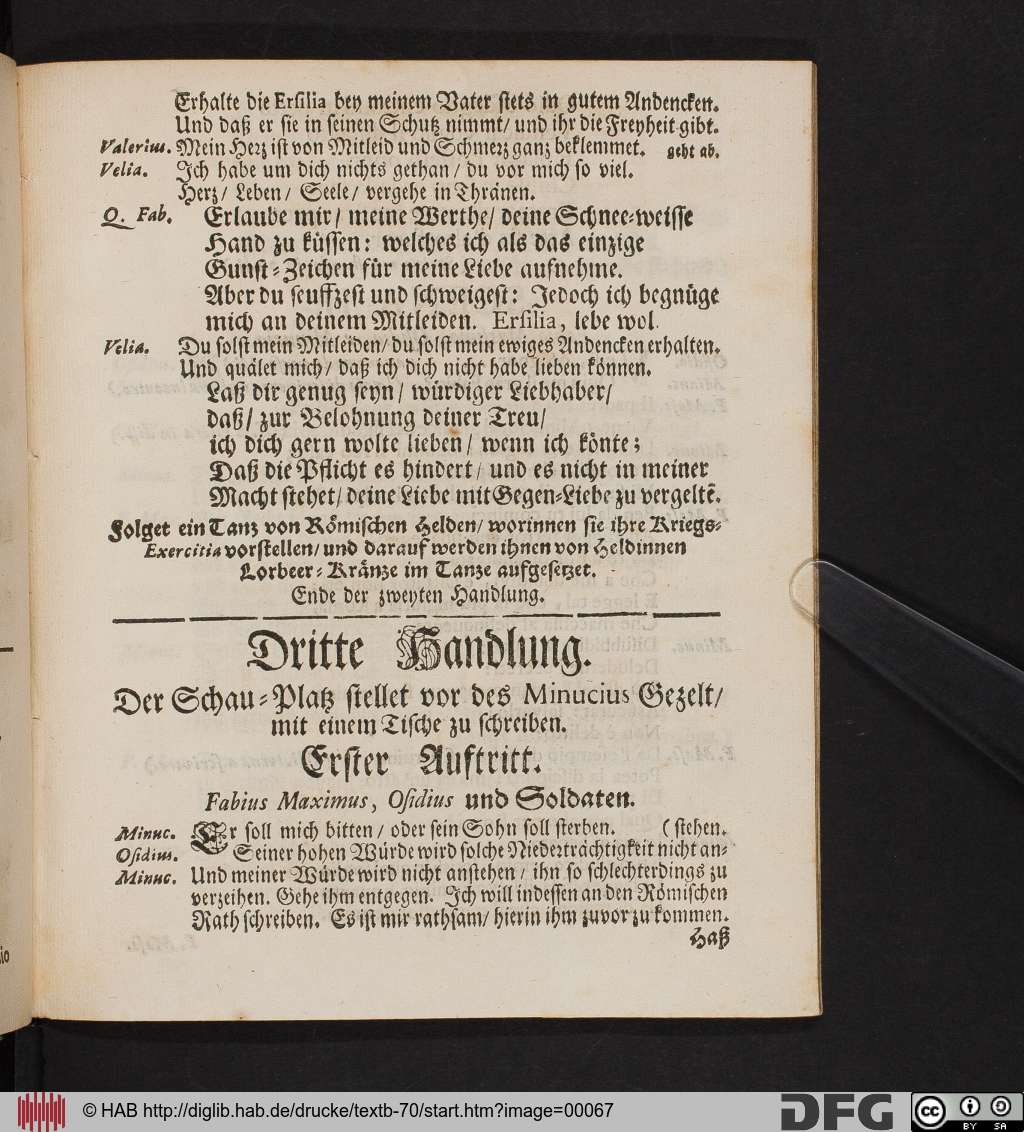 Erhalte die Ersilia bey meinem Vater stets in gutem Andencken.
Und daß er sie in seinen Schutz nimmt/ und ihr die Freyheit gibt.
Valerius. Mein Herz ist von Mitleid und Schmerz ganz beklemmet. geht ab.
Velia. Ich habe um dich nichts gethan/ du vor mich so viel.
Herz/ Leben/ Seele/ vergehe in Thränen.
Q. Fab. Erlaube mir/ meine Werthe/ deine Schnee-weisse
Hand zu küssen: welches ich als das einzige
Gunst-Zeichen für meine Liebe aufnehme.
Aber du seuffzest und schweigest: Jedoch ich begnüge
mich an deinem Mitleiden. Ersilia, lebe wol.
Velia. Du solst mein Mitleiden/ du solst mein ewiges Andencken erhalten.
Und quälet mich/ daß ich dich nicht habe lieben können.
Laß dir genug seyn/ würdiger Liebhaber/
daß/ zur Belohnung deiner Treu/
ich dich gern wolte lieben/ wenn ich könte;
Daß die Pflicht es hindert/ und es nicht in meiner
Macht stehet/ deine Liebe mit Gegen-Liebe zu vergeltẽ.
Folget ein Tanz von Römischen Helden/ worinnen sie ihre Kriegs-
Exercitia vorstellen/ und darauf werden ihnen von Heldinnen
Lorbeer-Kränze im Tanze aufgesetzet.
Ende der zweyten Handlung.
Dritte Handlung.
Der Schau-Platz stellet vor des Minucius Gezelt/
mit einem Tische zu schreiben.
Erster Auftritt.
Fabius Maximus, Osidius und Soldaten.
Minuc. Er soll mich bitten/ oder sein Sohn soll sterben. (stehen.
Osidius. Seiner hohen Würde wird solche Niederträchtigkeit nicht an-
Minuc. Und meiner Würde wird nicht anstehen/ ihn so schlechterdings zu
verzeihen. Gehe ihm entgegen. Ich will indessen an den Römischen
Rath schreiben. Es ist mir rathsam/ hierin ihm zuvor zu kommen.
Haß
© HAB http://diglib.hab.de/drucke/textb-70/start.htm?image=00067
DFG
cc BY SA